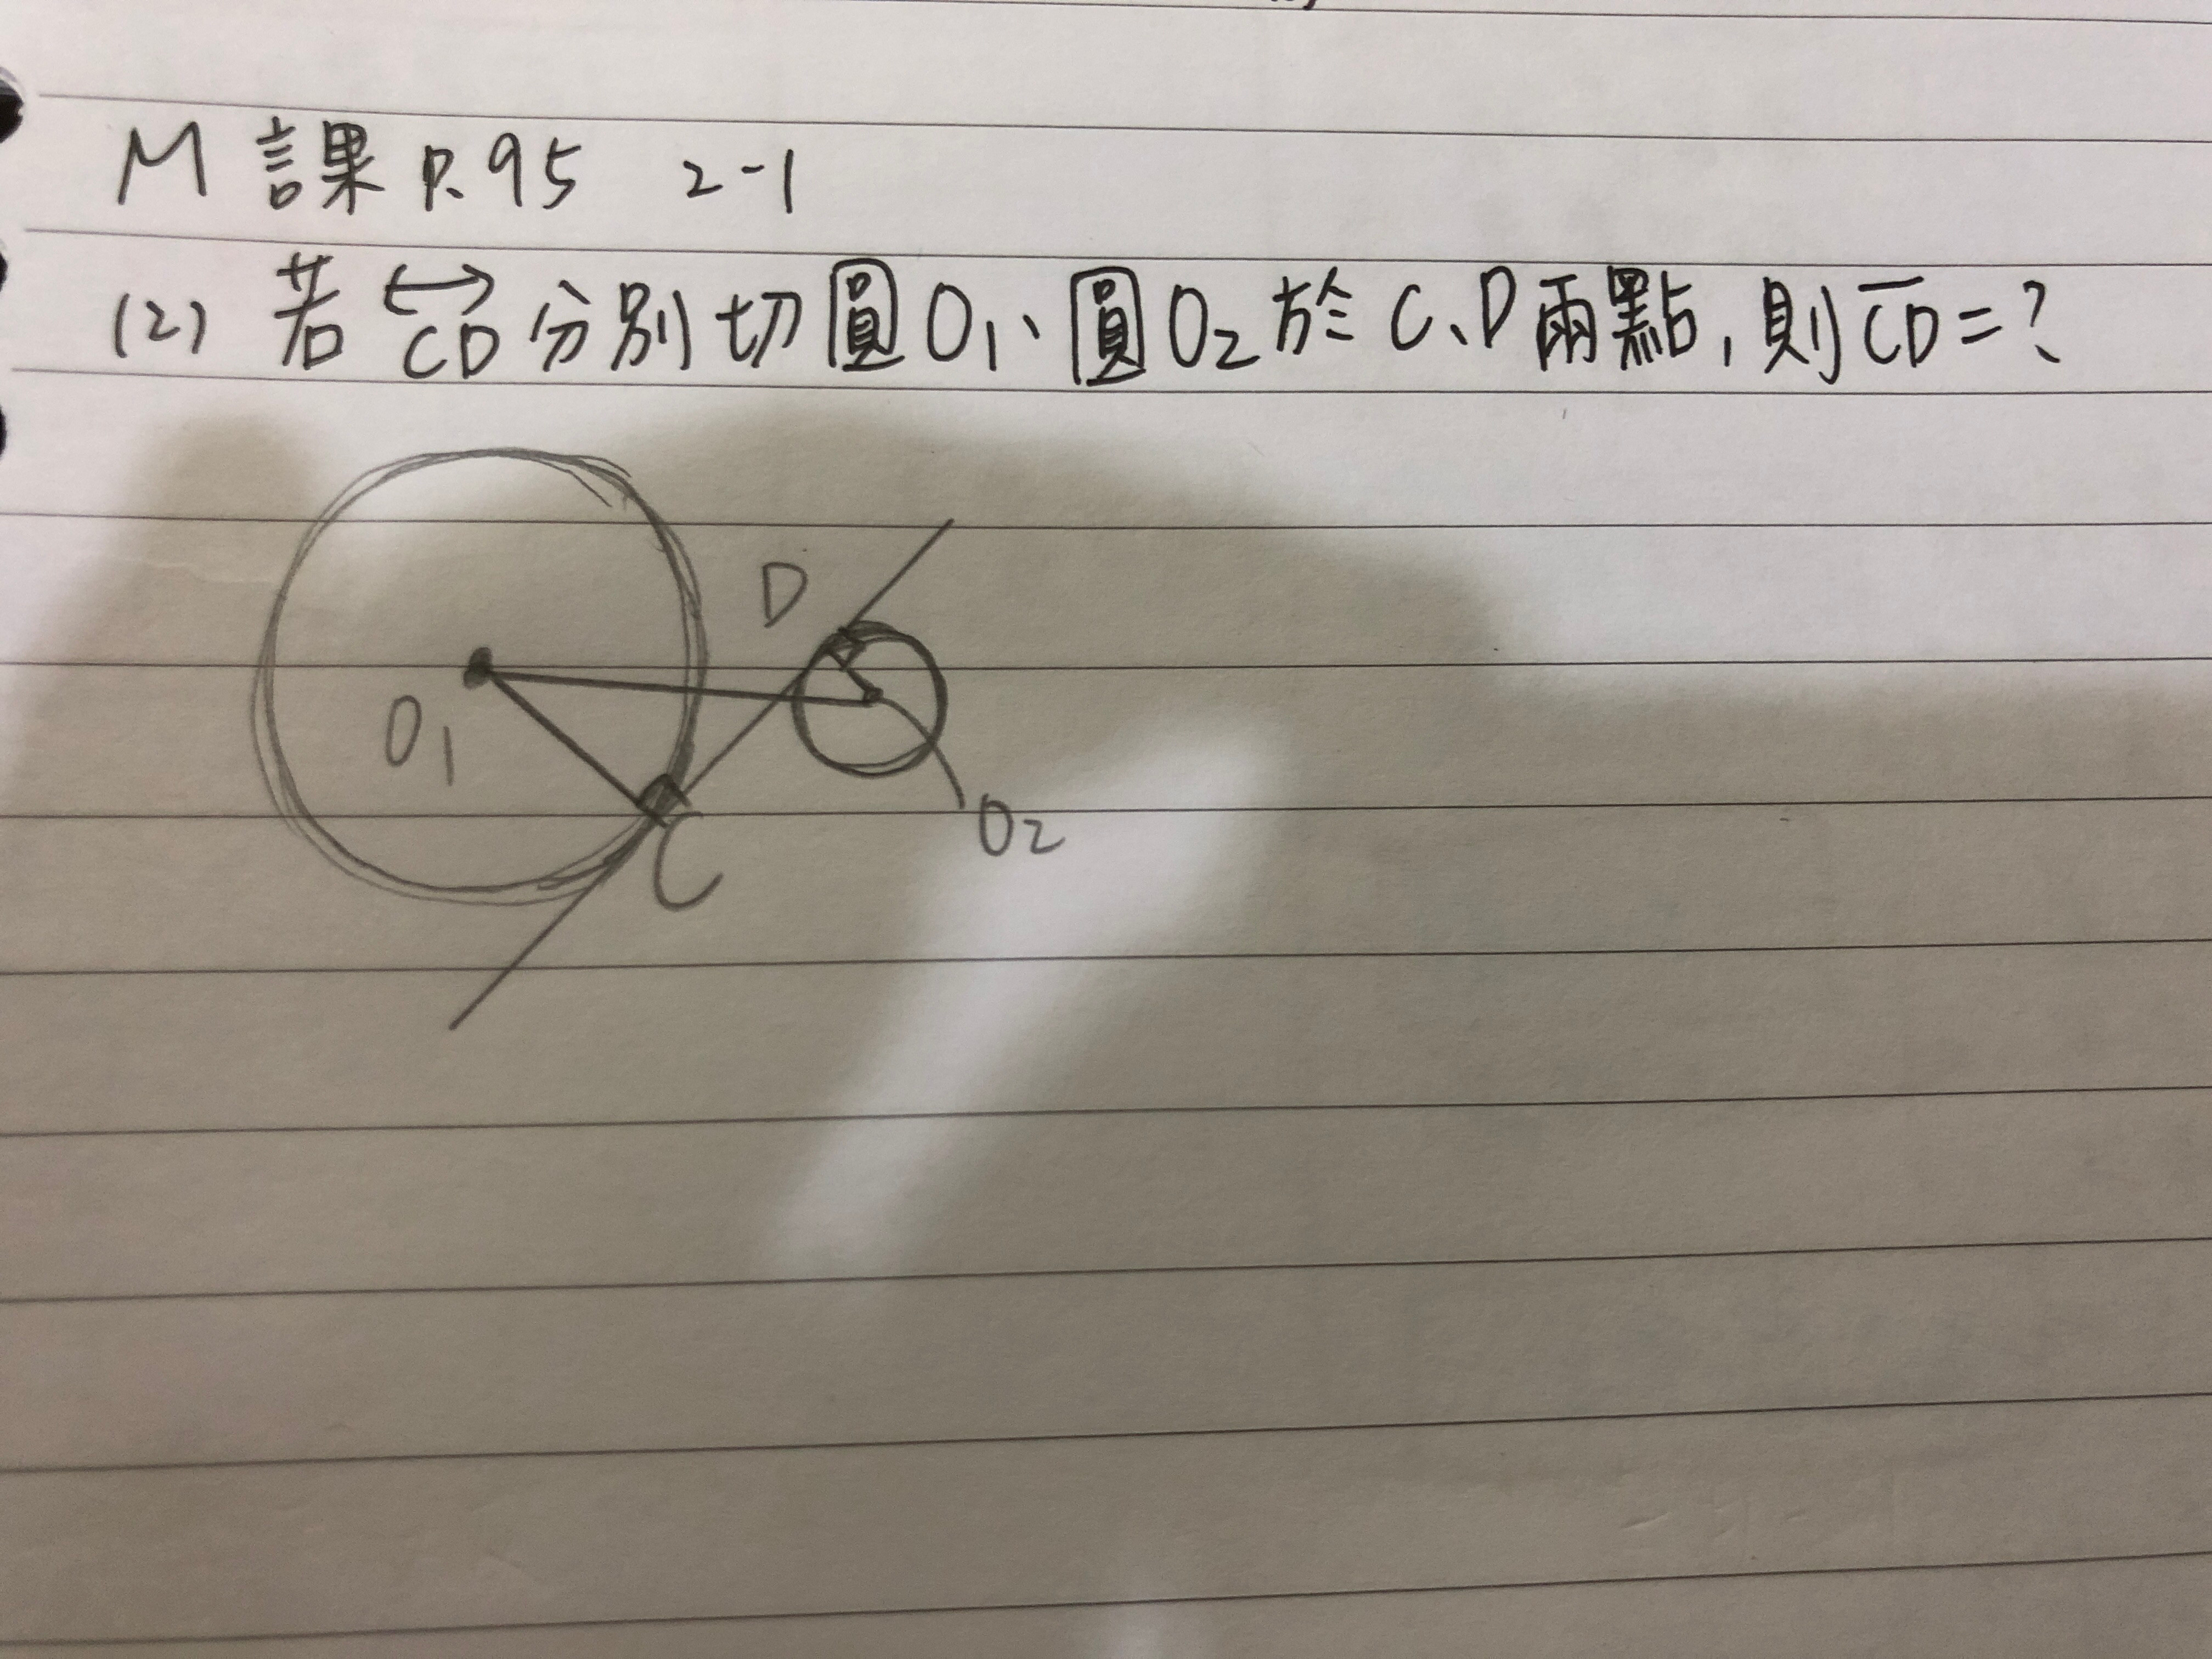 M 課 P.95 2-1
(2) 若 CD 分別切圓O₁、圓O₂於C、D兩點,則CD=?
D
O₁
C
O₂